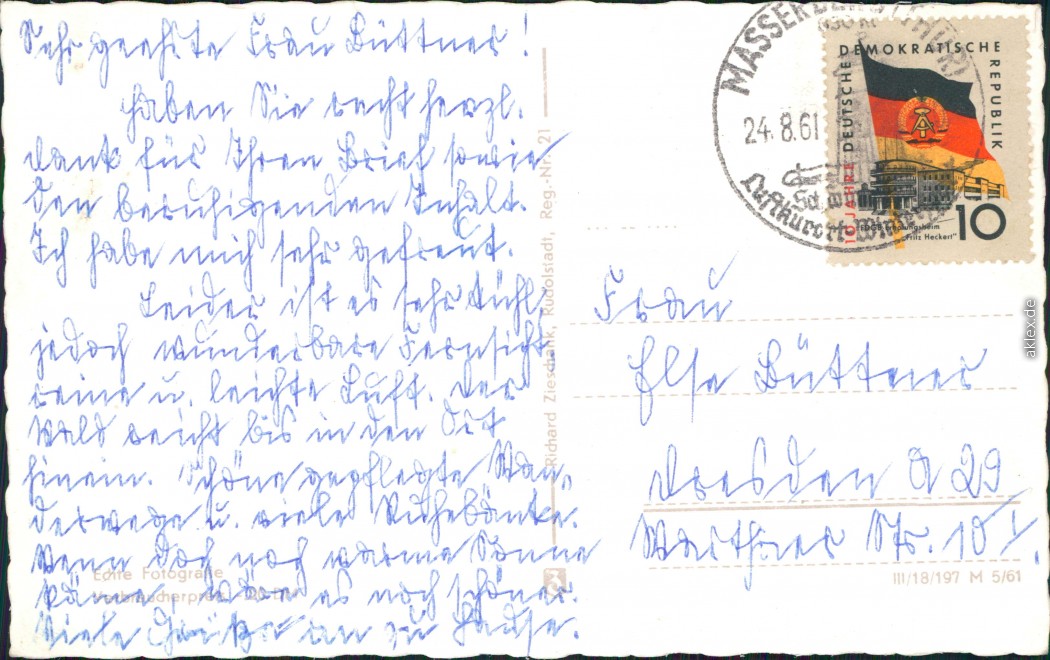 Sehr geehrte Frau Büttner!
haben Sie recht herzl.
Dank für Ihren Brief sowie
den beruhigenden Inhalt.
Ich habe mich sehr gefreut.
Leider ist es sehr kühl,
jedoch wunderbare Fernsicht
reine u. leichte Luft. Der
Wald reicht bis in den Ort
hinein. Schöne gepflegte Wan„
derwege u. viele Ruhebänke.
Wenn doch noch warme Sonne
käme, wäre es noch schöner.
Viele Grüße an zu Hause.
Echte Fotografie
Verbraucherpreis
Richard Zieschank, Rudolstadt, Reg.-Nr. 21
24.8.61
Luftkurort
DEUTSCHE DEMOKRATISCHE REPUBLIK
10 JAHRE
FDGB Erholungsheim
"Fritz Heckert"
10
Frau
Else Büttner
Dresden A 29
Warthaer Str. 10 I.
III/18/197 M 5/61
aklex.de